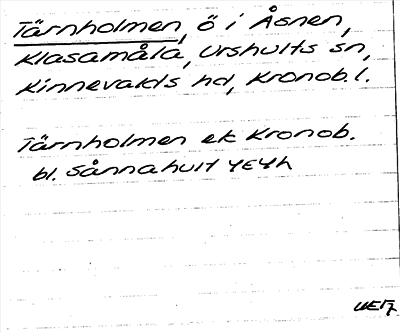 Tärnholmen, ö i Åsnen,
Klasamåla, Urshults sn,
Kinnevalds hd, Kronob. l.
Tärnholmen ek Kronob.
bl. Sånnahult 4E4h